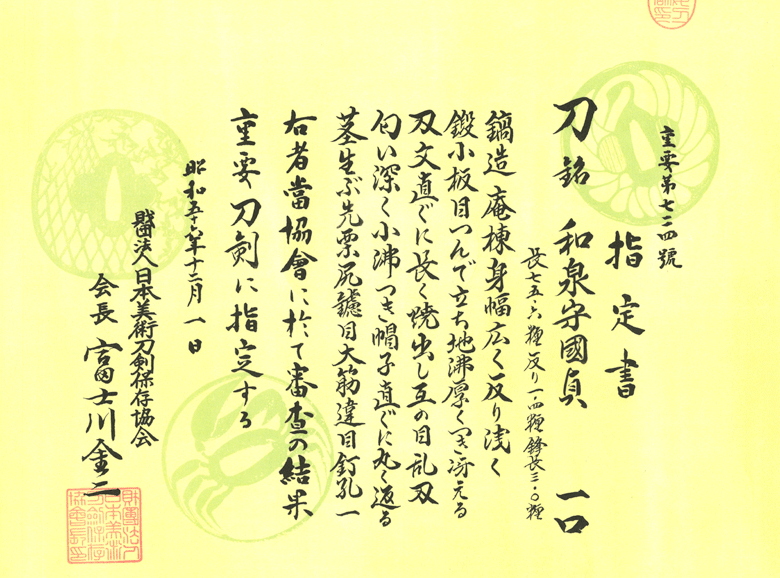 重要第七二四號
指定書
刀 銘 和泉守國貞 一口
長七五・六糎 反り一・四糎 鋒長三・〇糎
鎬造 庵棟身幅広く反り浅く
鍛小板目つんで立ち地沸厚くつき冴える
刃文直ぐに長く焼出し互の目乱刃
匂い深く小沸つき帽子直ぐに丸く返る
茎生ぶ先栗尻鑢目大筋違目釘孔一
右者當協會に於て審査の結果
重要刀剣に指定する
昭和五十六年十二月一日
財団法人日本美術刀剣保存協会
会長 富士川金二
財團法人日本美術刀劍保存協會長印